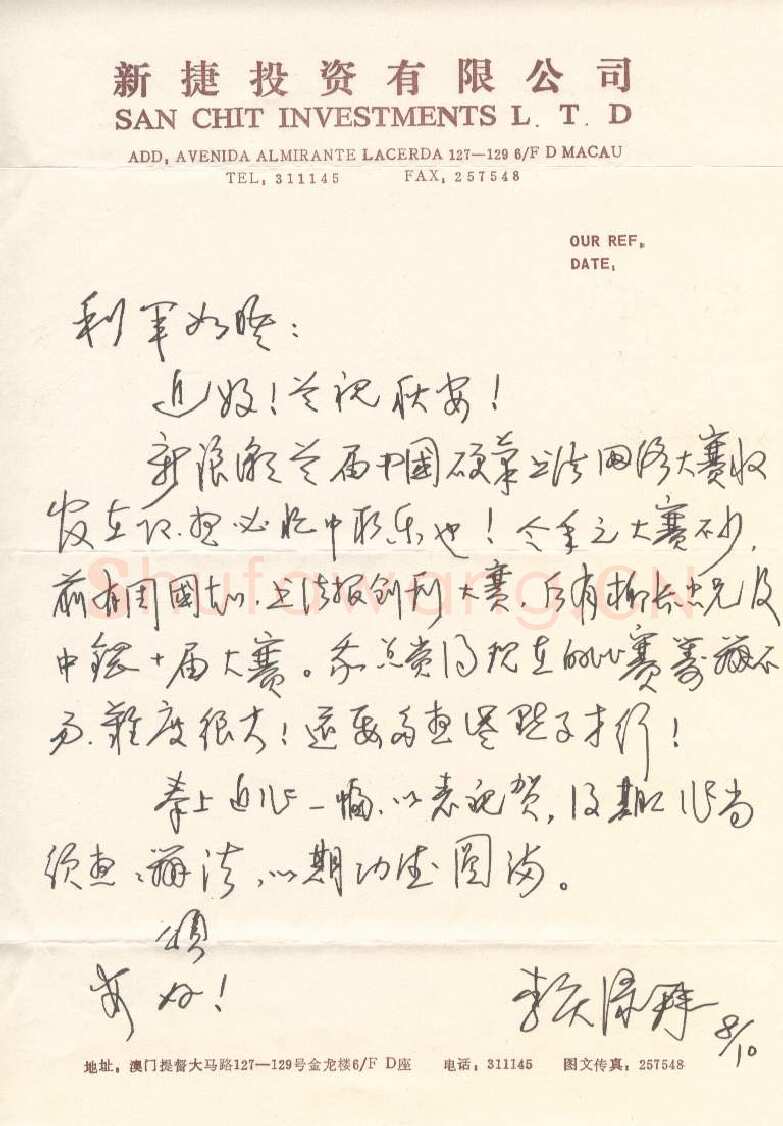 新捷投资有限公司
SAN CHIT INVESTMENTS L. T. D
ADD, AVENIDA ALMIRANTE LACERDA 127—129 6/F D MACAU
TEL, 311145 FAX, 257548
OUR REF,
DATE,
利军如晤：
近好！并祝秋安！
新浪潮首届中國硬笔书法网络大赛收
官在即，想必忙中取乐也！今年之大赛不少，
前有周國城、书法报创刊大赛，后有柳长忠兄及
中韩十届大赛。我总觉得现在的比赛筹办不
易，難度很大！还要多想点点子才行！
奉上近作一幅，以表祝贺，后期工作尚
须想想办法，以期功德圆满。
颂
安好！
8/10
Shufawang.CN
地址，澳门提督大马路127—129号金龙楼6/F D座 电话，311145 图文传真，257548